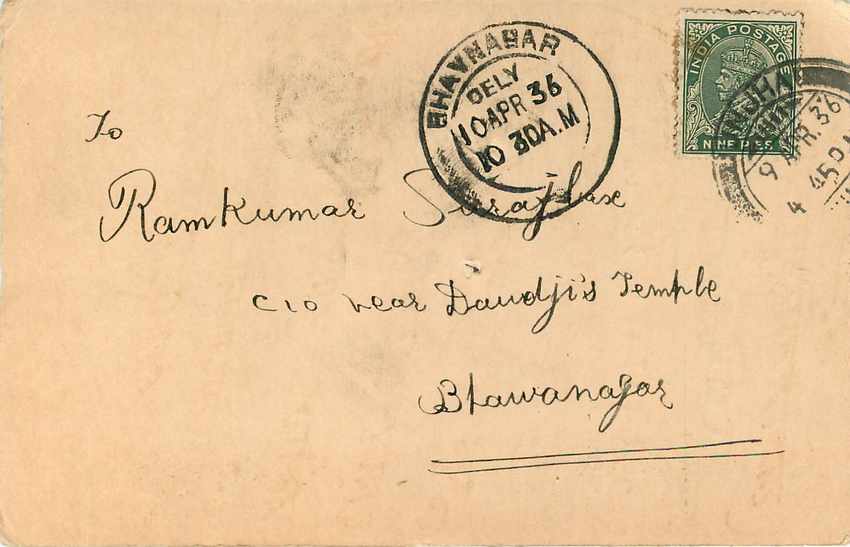 INDIA POSTAGE
NINE PIES
BHAVNAGAR
DELY
10 APR 36
10 30 A.M
9 APR. 36
4 45 P
To
Ramkumar
c/o near Daudji's Temple
Bhawanagar